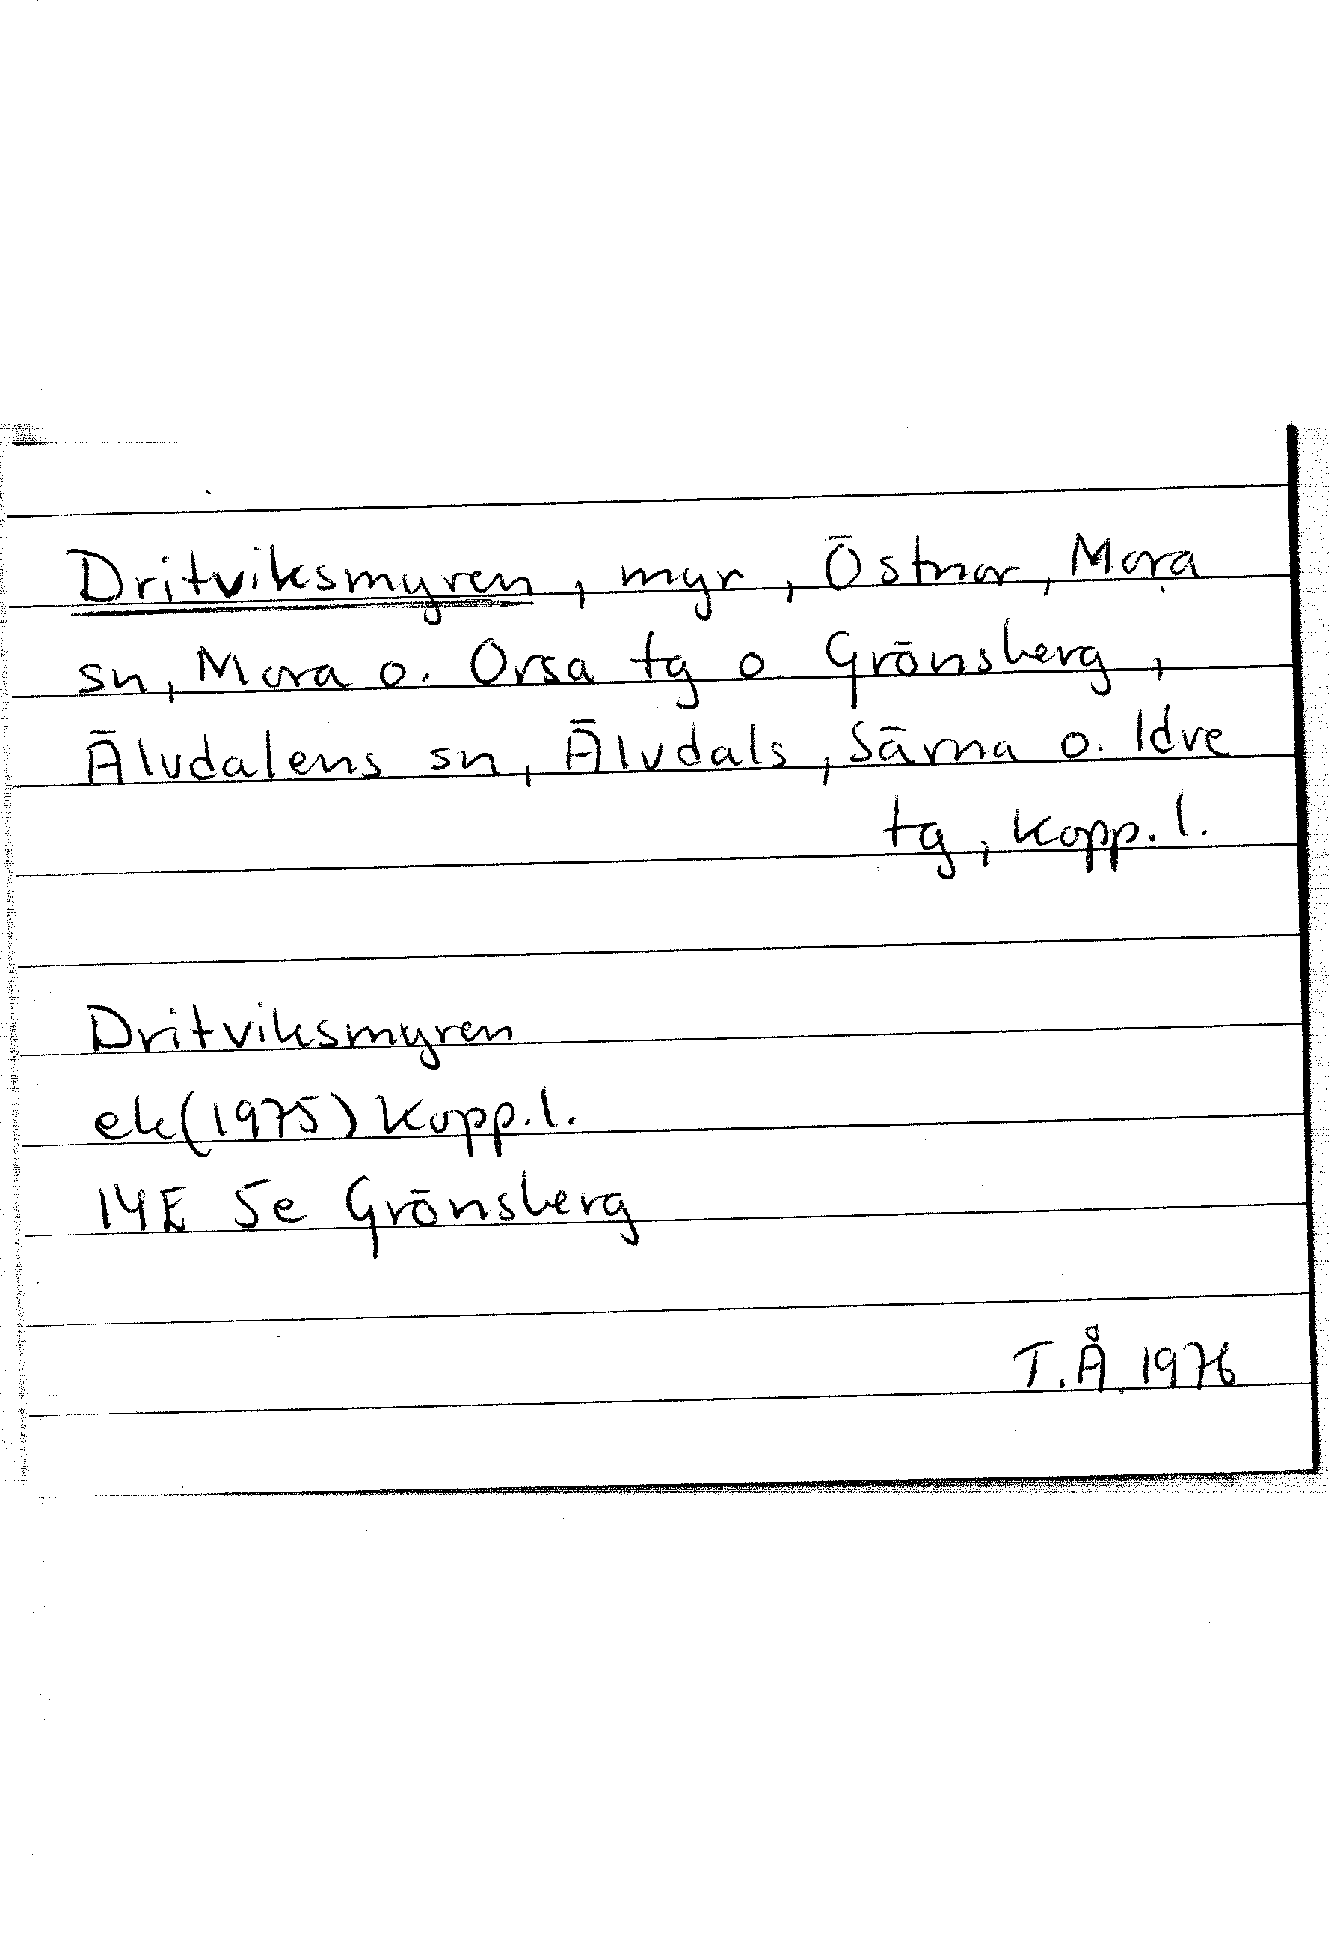 Dritviksmyren, myr, Östnor, Mora
sn, Mora o. Orsa tg o Grönsberg,
Älvdalens sn, Älvdals, Särna o. Idre
tg, Kopp. l.
Dritviksmyren
ek(1975) Kopp.l.
14E 5e Grönsberg
T.Å. 1976